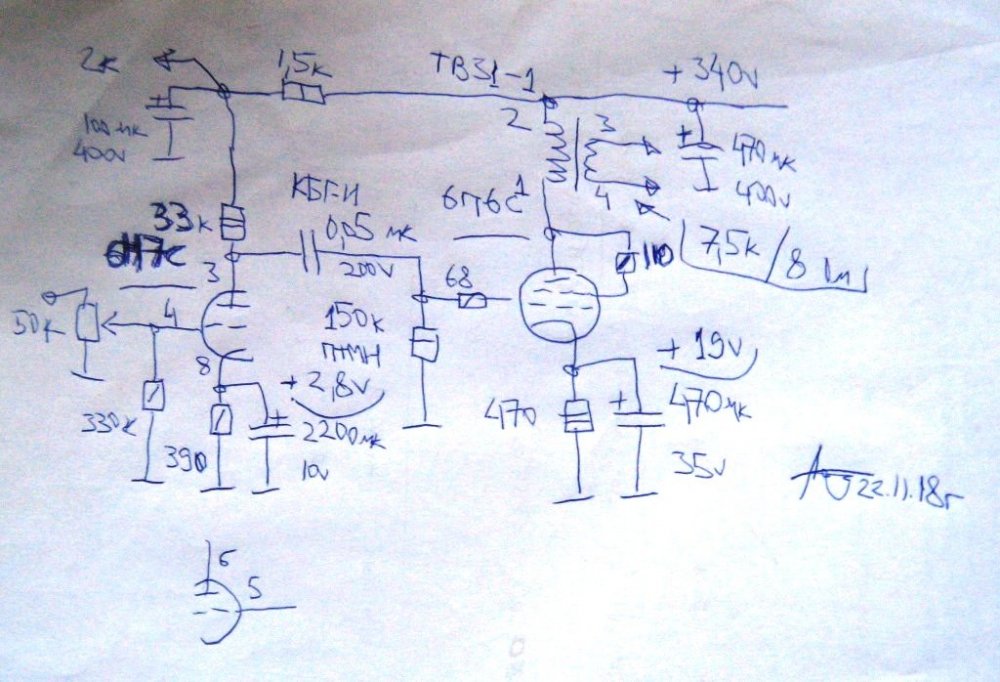 2к
1,5к
ТВЗ1-1
+340v
100мк
400v
2
3
1
4
470мк
400v
КБГ-И
0,05 мк
200v
6П6С
33к
3
110
7,5к/8 Ом
68
50к
4
8
150к
ПТМН
+2,8v
+19v
330к
390
2200мк
10v
470
470мк
35v
22.11.18г
6
5